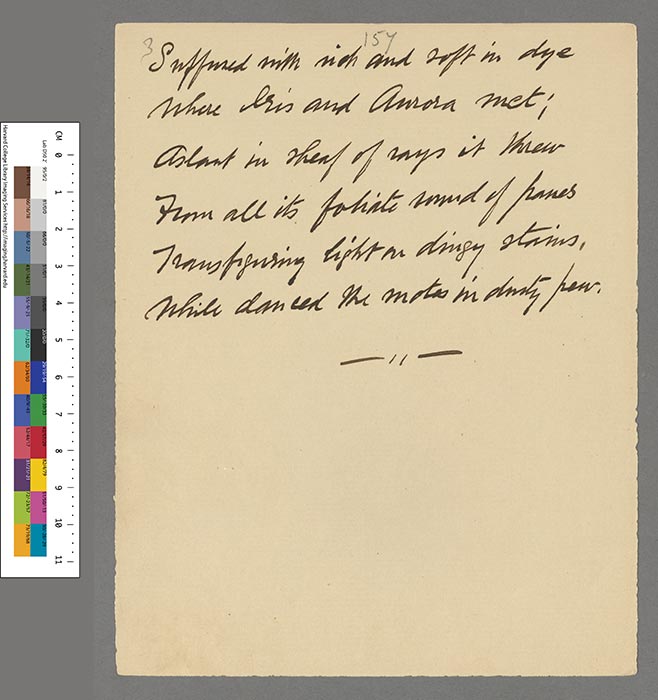 3
157
Suffused with rich and soft in dye
Where Iris and Aurora met;
Aslant in sheaf of rays it threw
From all its foliate round of panes
Transfiguring light on dingy stains,
While danced the motes in dusty pew.
CM 0 1 2 3 4 5 6 7 8 9 10 11
Harvard College Library Imaging Services http://imaging.harvard.edu